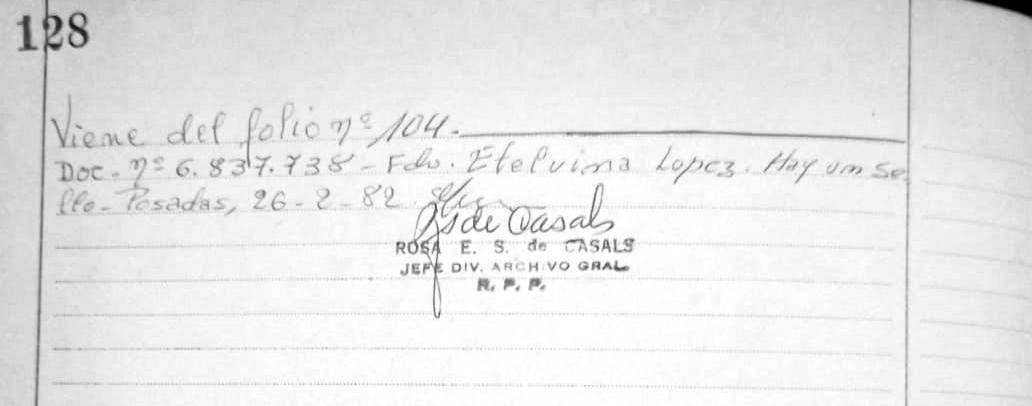 128
Viene del folio nº 104.
Doc. nº 6.837.738 - Fdo. Etelvina Lopez. Hay un se
llo - Posadas, 26 - 2 - 82.
de Casals
ROSA E. S. de CASALS
JEFE DIV. ARCHIVO GRAL.
R. P. P.